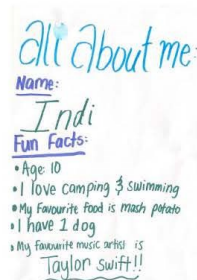 all about me:
Name:
Indi
Fun Facts:
• Age 10
• I love camping & swimming
• My favourite food is mash potato
• I have 1 dog
• My favourite music artist is
Taylor Swift!!